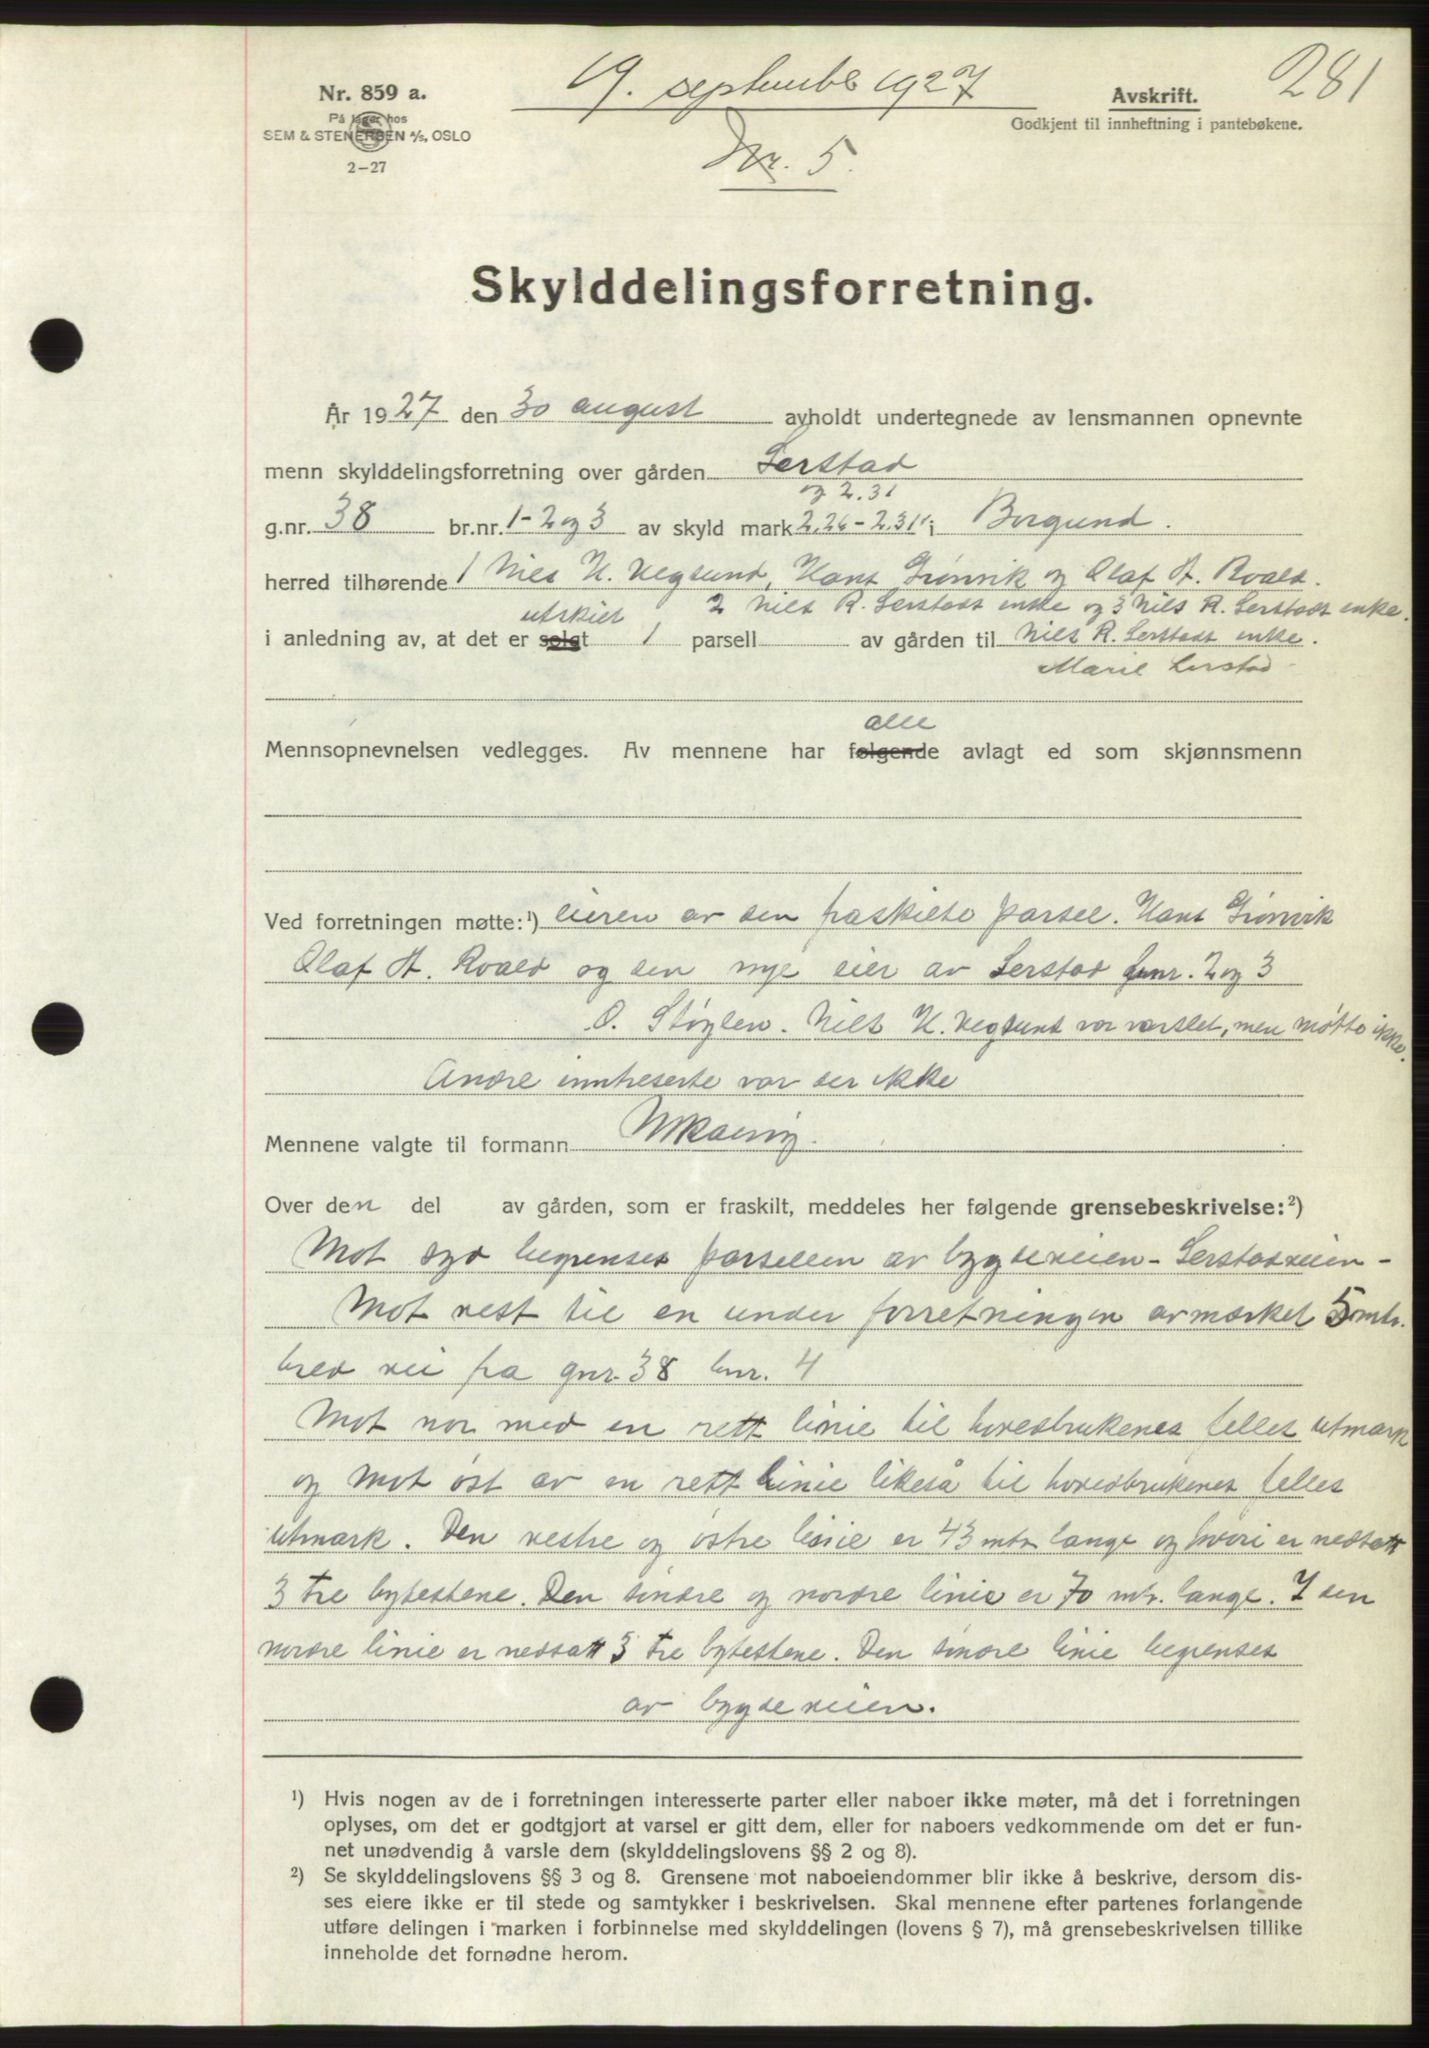 281
19. september 1927
Nr. 859 a.
Avskrift.
På lager hos
Godkjent til innheftning i pantebøkene.
SEM & STENERSEN A/S, OSLO
2-27
Nr. 5.
Skylddelingsforretning.
År 1927 den 30 august avholdt undertegnede av lensmannen opnevnte
menn skylddelingsforretning over gården Lerstad
og 2.31
g.nr. 38 br.nr. 1-2 og 3 av skyld mark 2.26 - 2.31 i Borgund.
herred tilhørende 1 Nils K. Vegsund, Hans Grønvik og Olaf A. Roald.
2 Nils R. Lerstads enke og 3 Nils R. Lerstads enke.
utskilt
i anledning av, at det er solgt 1 parsell av gården til Nils R. Lerstads enke.
Marie Lerstad
alle
Mennsopnevnelsen vedlegges. Av mennene har følgende avlagt ed som skjønnsmenn
Ved forretningen møtte:¹) eieren av den fraskilte parsel. Hans Grønvik
Olaf A. Roald og den nye eier av Lerstad bnr. 2 og 3
O. Støylen. Nils K. Vegsund var varslet, men møtte ikke.
Andre inntreserte var der ikke
Mennene valgte til formann
Over den del av gården, som er fraskilt, meddeles her følgende grensebeskrivelse:²)
Mot syd begrenses parsellen av bygdeveien - Lerstadveien -
Mot vest til en under forretningen avmerket 5 mtr.
bred vei fra gnr. 38 bnr. 4
Mot nor med en rett linie til hovedbrukenes felles utmark
og mot øst av en rett linie likeså til hovedbrukenes felles
utmark. Den vestre og østre linie er 43 mtr. lange og hvori er nedsatt
3 tre bytestene. Den søndre og nordre linie er 70 mtr. lange. I den
nordre linie er nedsatt 3 tre bytestene. Den søndre linie begrenses
av bygdeveien.
¹) Hvis nogen av de i forretningen interesserte parter eller naboer ikke møter, må det i forretningen
oplyses, om det er godtgjort at varsel er gitt dem, eller for naboers vedkommende om det er fun-
net unødvendig å varsle dem (skylddelingslovens §§ 2 og 8).
²) Se skylddelingslovens §§ 3 og 8. Grensene mot naboeiendommer blir ikke å beskrive, dersom dis-
ses eiere ikke er til stede og samtykker i beskrivelsen. Skal mennene efter partenes forlangende
utføre delingen i marken i forbinnelse med skylddelingen (lovens § 7), må grensebeskrivelsen tillike
inneholde det fornødne herom.